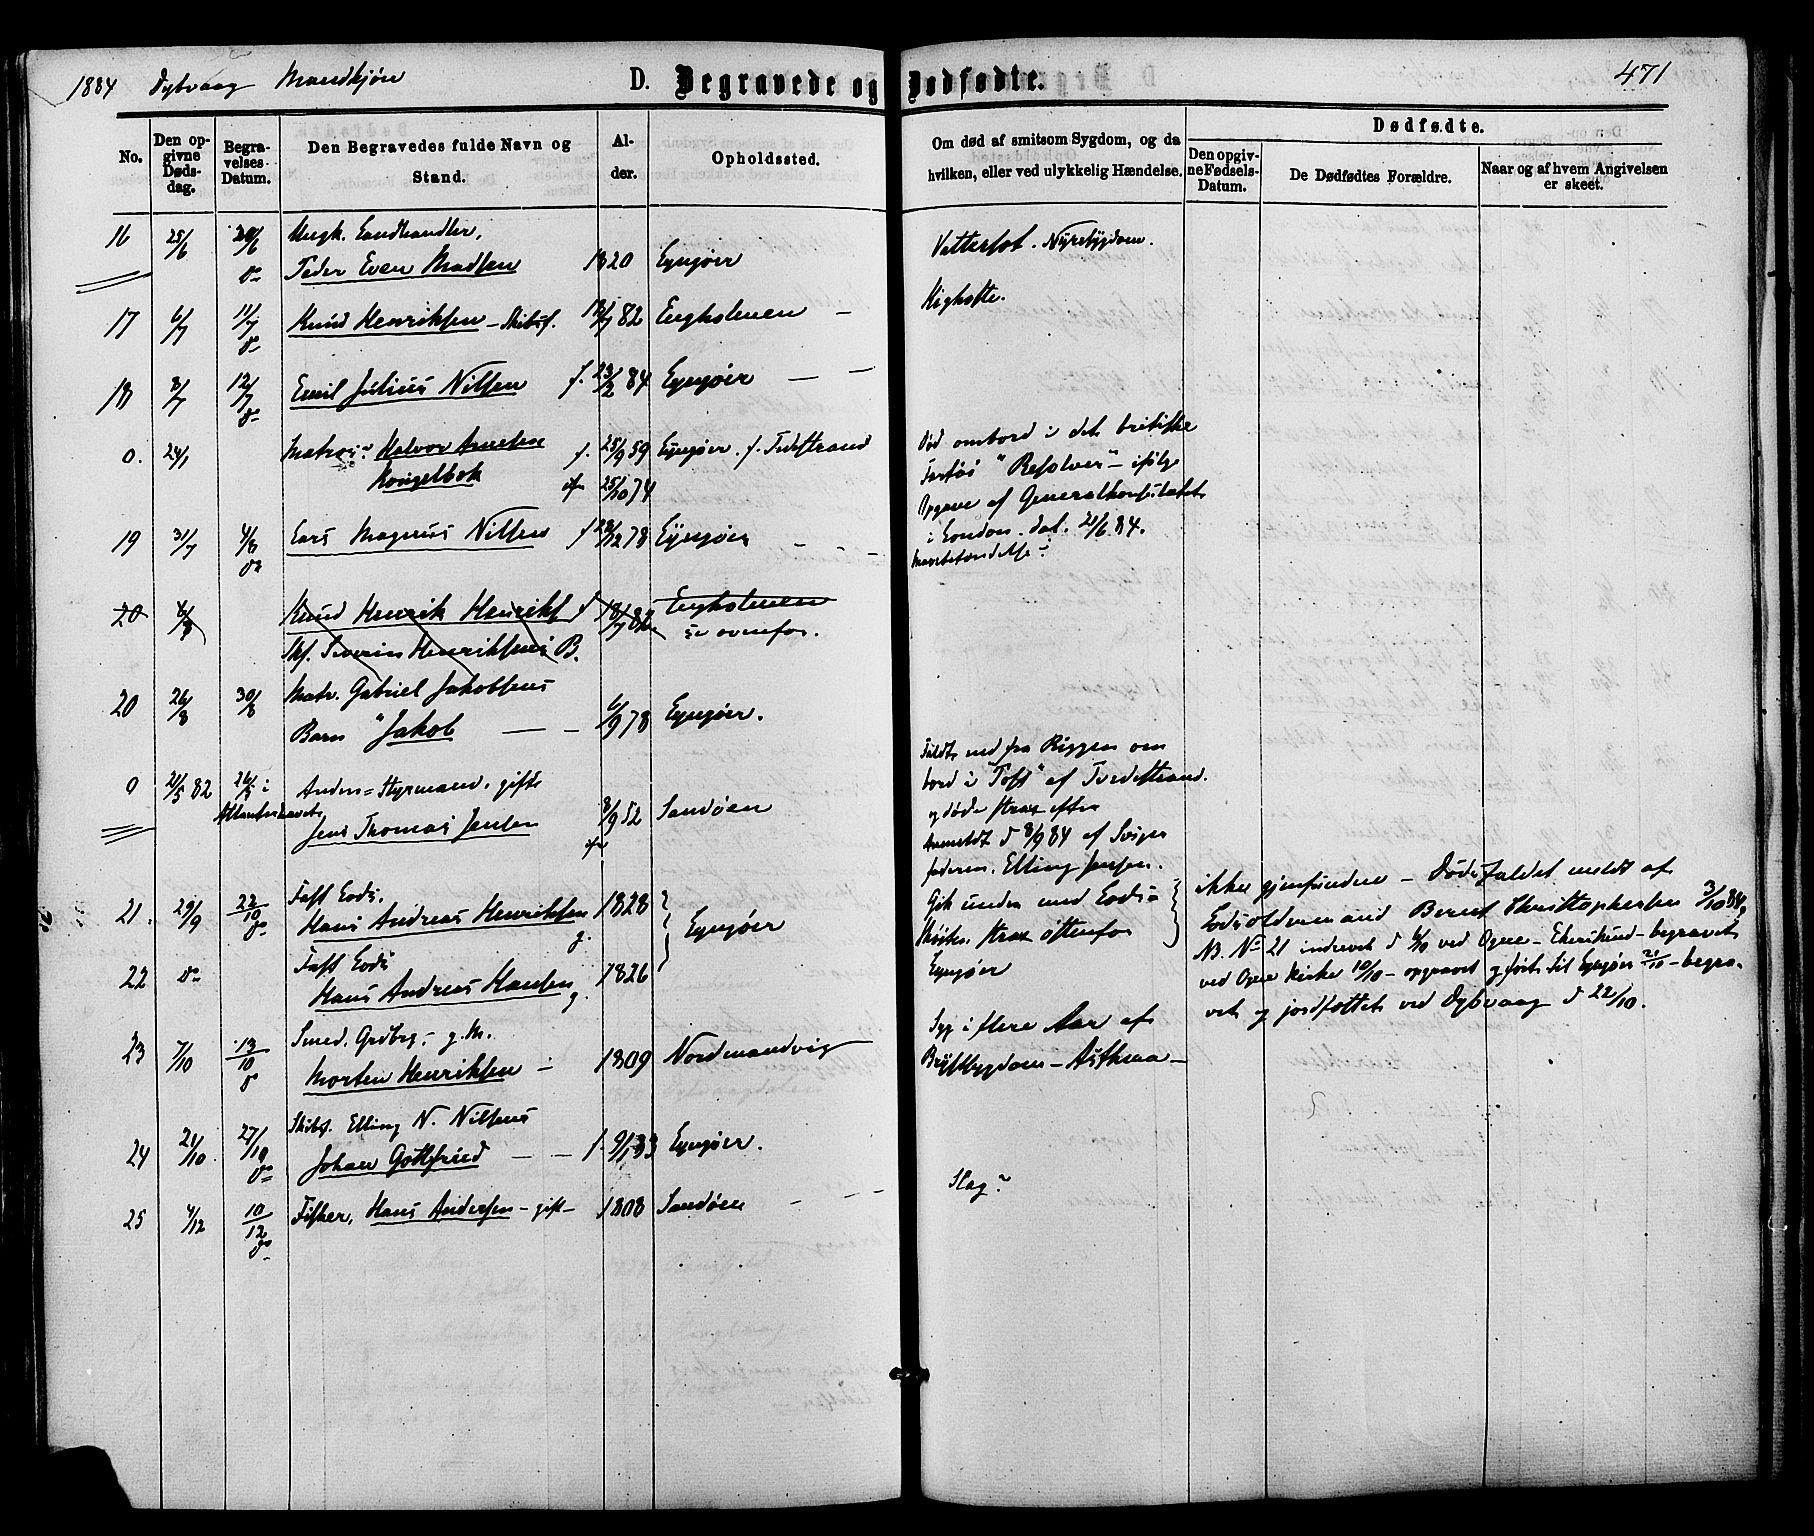 1884 Dybvaag Mandkjøn D. Begravede og Dødfødte. 471
No.
Den opgivne Dødsdag.
Begravelses-Datum.
Den Begravedes fulde Navn og Stand.
Alder.
Opholdssted.
Om død af smitsom Sygdom, og da hvilken, eller ved ulykkelig Hændelse.
Dødfødte.
Den opgivne Fødsels-Datum.
De Dødfødtes Forældre.
Naar og af hvem Angivelsen er skeet.
16 25/6 Ungk. Landhandler,
Peder Even Madsen 1820 Lyngøer Vattersot. Nyresygdom.
17 6/7 11/7 Knud Henriksen - Skibsf. 18/7 82 Lyngholmen - Kighoste.
do
18 8/7 12/7 Emil Julius Nilsen f. 23/2 84 Lyngøer - -
do
0. 24/1 Matros Halvor Arnesen f. 25/9 59 Lyngøer. f. Tvedestrand
Kongelbok 25/10 74
Død ombord i det britiske
Fartøi "Resolven" - ifølge
Opgave af Generalkonsulatet
i London. dat. 21/6 84.
19 31/7 4/8 Lars Magnus Nilsen f 28/12 78 Lyngøer -
do
20 6/8 Knud Henrik Henriks f 18/7 82 Lyngholmen
Skf. Severin Henriksens B. se ovenfor.
20 26/8 30/8 Matr. Gabriel Jakobsens
Barn "Jakob - - 6/9 78 Lyngøer.
0 21/5 82 26/5 i Anden = Styrmand, gift
Atlanterhavet Jens Thomas Jensen 8/9 52 Sandøen
Faldt ned fra Riggen om
bord i "Toft" af Tvedestrand.
og døde strax efter
Anmeldt d 8/9 84 af Sviger
faderen. Elling Jensen.
21. 29/9 22/10 Fast Lods,
do Hans Andreas Henriksen 1828 Lyngøer
g.
Gik under med Lods=
Skøiten strax østenfor
Lyngøer
22 do Fast Lods
Hans Andreas Hansen 1826
g.
ikke gjenfunden - Dødsfaldet meldt af
Lodsoldermand Berent Kristophersen 3/10 84,
N. No 21 indrevet d 6/9 ved Ogne - Ekersund - begravet
ved Ogne Kirke 10/10 - opgravet og ført til Lyngøer 21/10 - begra-
vet og jordfæstet ved Dybvaag d 22/10.
23 7/10 13/10 Smed. Grdbrg. - g. M.
do Morten Henriksen - 1809 Nordmandvig
Syg i flere Aar af
Brystsygdom - Asthma -
24 21/10 27/10 Skibsf. Elling N. Nilsens
do Johan Gottfried - - f. 9/1 83 Lyngøer.
25 4/12 10/12 Fisker, Hans Andersen - gift - 1808 Sandøen - - Slag?
do